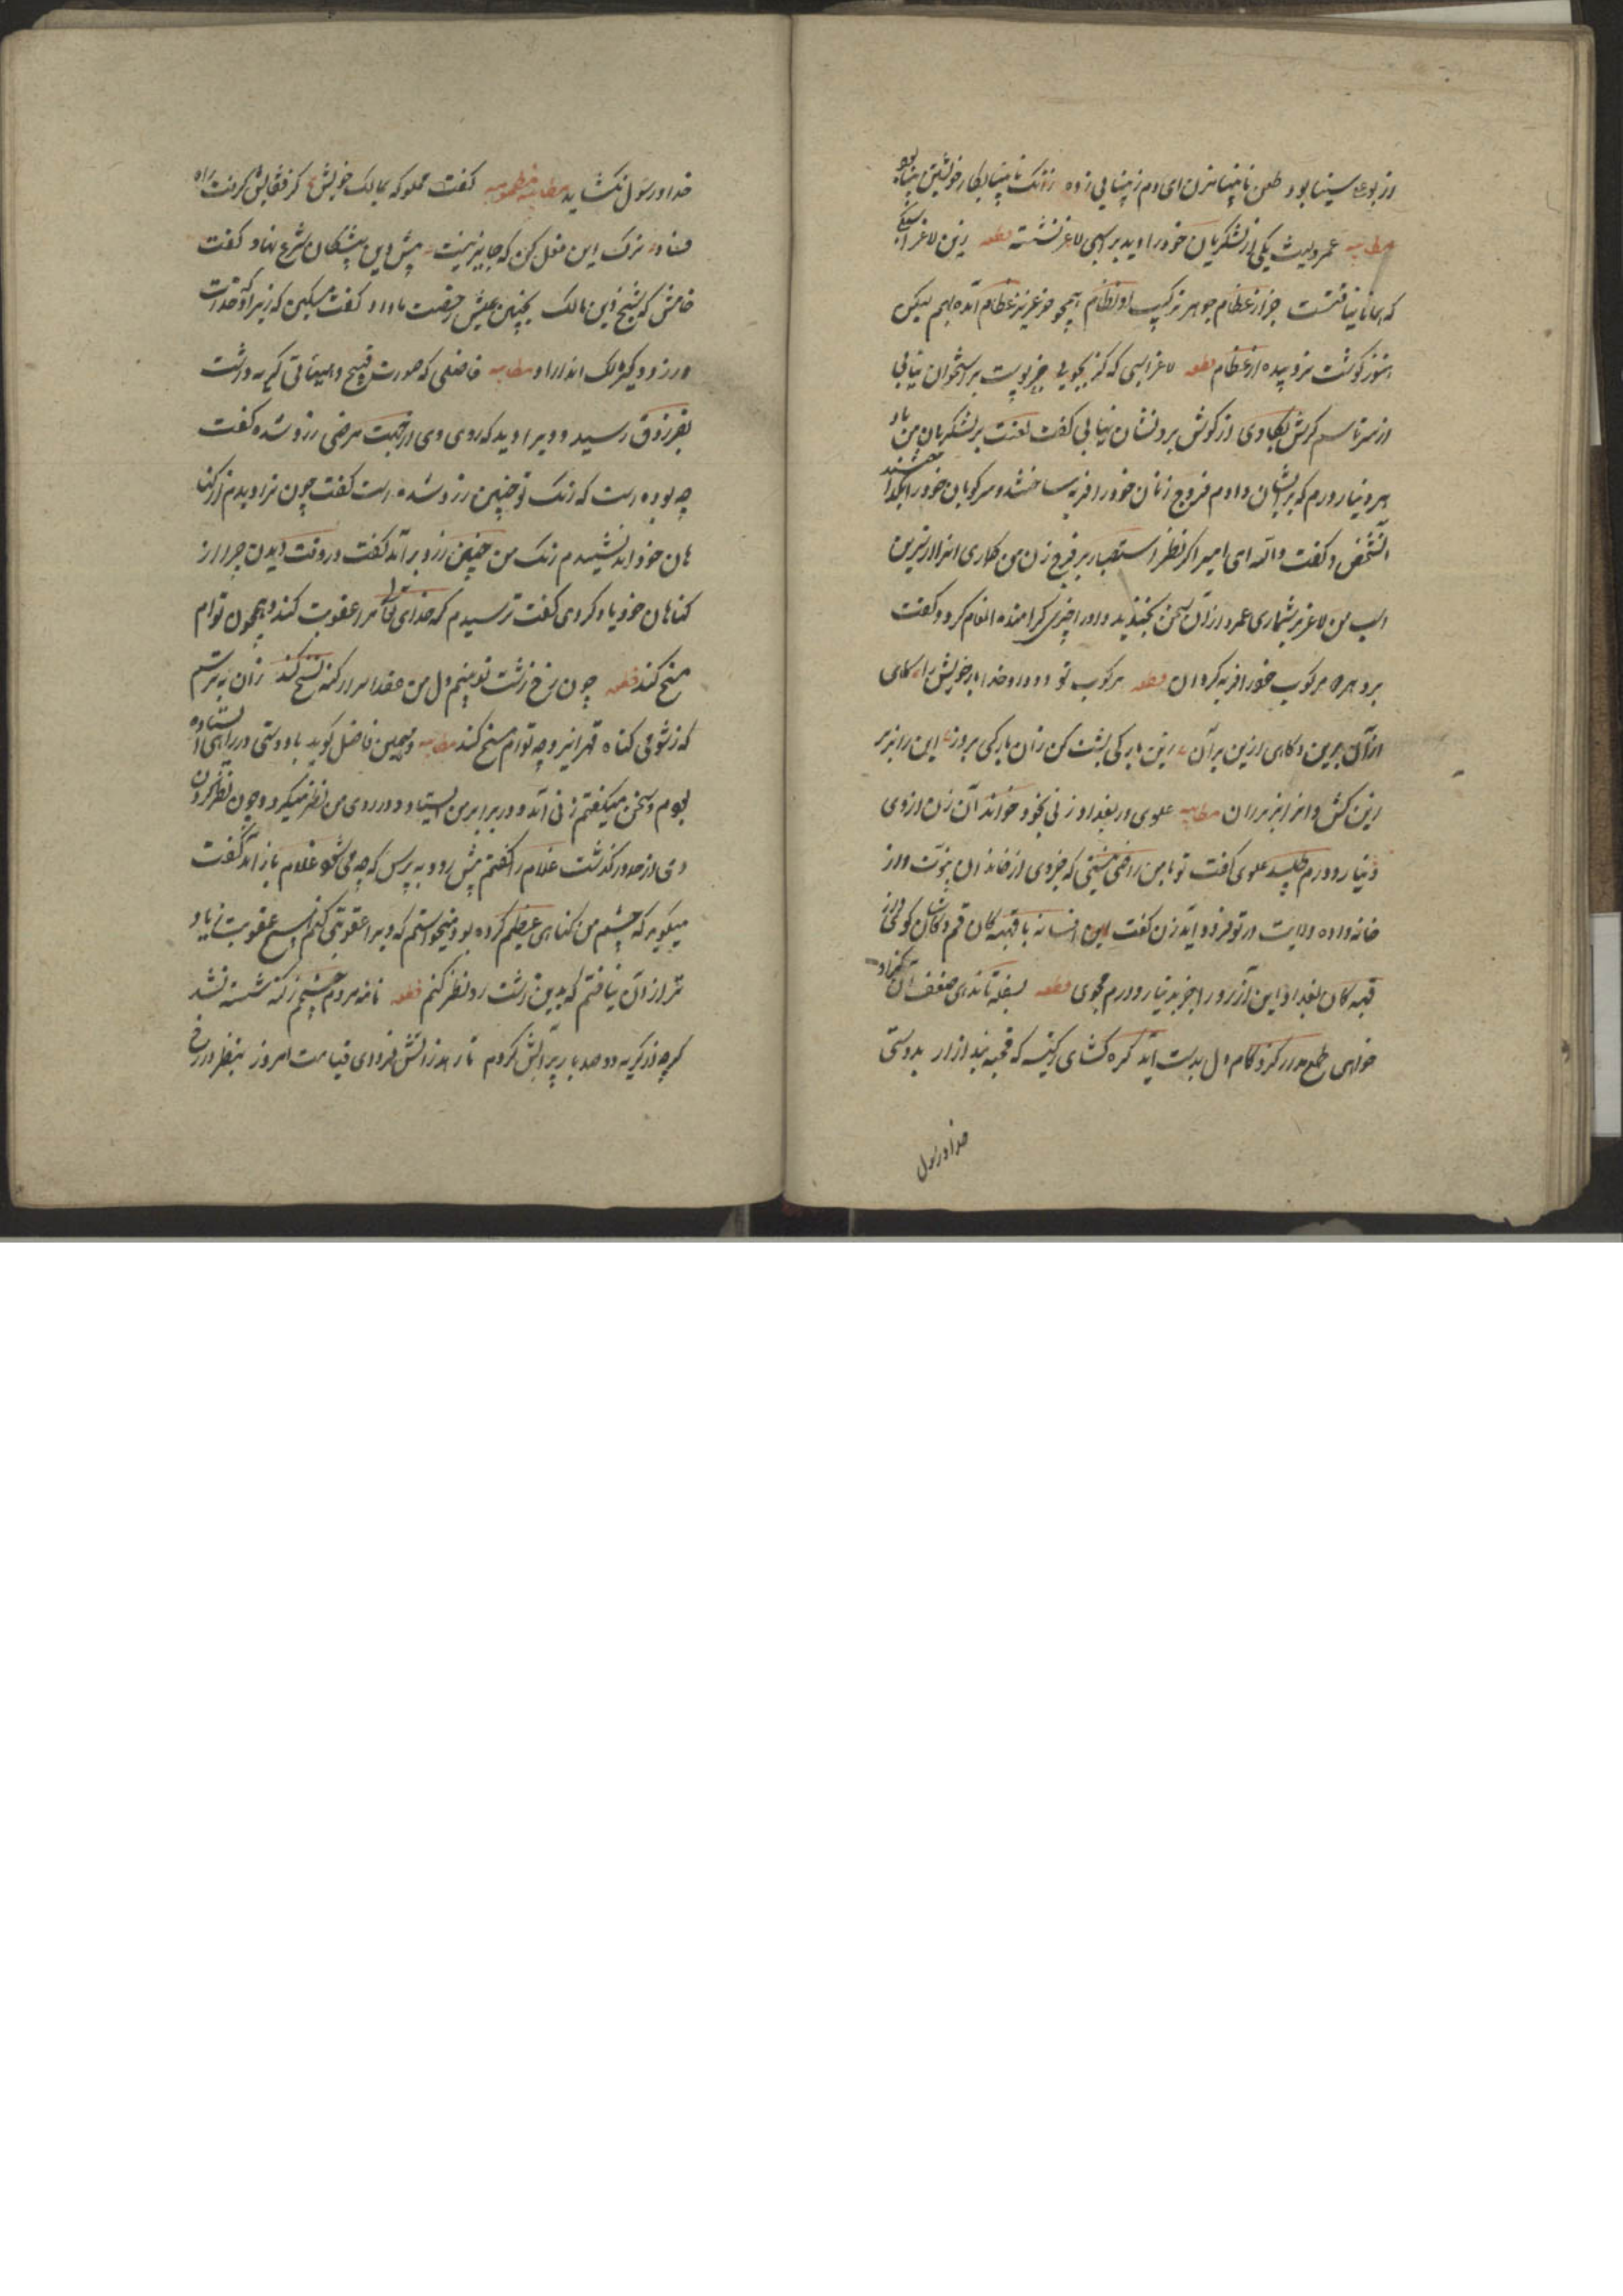 ور بوعلی سینا بود طعن نابینا مزن ای دم ز بینایی زده زانک نابینا بکار خویشتن بینا بود
مطایبه عمرولیث یکی از لشکریان خود را دید بر اسبی لاغر نشسته قطعه زین لاغر اسبکی
که همانا نیافتست جز از عظام جوهر ترکیب او نظام همچو عزیز عظام آمده بهم لیکن
هنوز گوشت نروییده از عظام قطعه لاغر اسبی که گر بجویی جز پوست بر استخوان نیابی
از سر تا سم گرش بکاوی از گوش برو نشان نیابی گفت لعنت بر لشکریان من باد
هر دینار و درم که بر ایشان دادم فروج زنان خود را فربه ساختند و مرکوبان خود را بگداختند
آنشخص گفت والله ای امیر اگر نظر استبصار بر فرج زن من گماری آنرا لاغرترین
اسب من لاغرتر شماری عمرو از آن سخن بخندید و او را چیزی گرامند انعام کرد و گفت
برو هر دو مرکوب خود را فربه گردان قطعه مرکوب تو دو داد خدا بار خویش را گاهی
ازان برین و گاهی ازین بر آن زین بارکی پشت کن زان بارکی بروز این را بزیر
زین کش و آنرا بزیر ران مطایبه علوی در بغداد زنی بخود خواند آن زن از وی
دینار و درم طلبید علوی گفت تو بمن راضی نیستی که جزوی از خاندان نبوت و از
خانواده ولایت در تو فرود آید زن گفت این افسانه با قحبه‌گان قم و کاشان گوی از
قحبه‌گان بغداد این آرزو را جز به دینار و درم مجوی قطعه بسفله تا ندهی ضعف آن
خواهی طمع مدار کزو کام دل بدست آید گره گشای ز کیسه که قحبه بند ازار بدوستی
خدا و رسول
خدا و رسول نگشاید مطایبه منظومه گفت مملوکه بمالک خویش کز قفایش گرفت راه
فساد ترک این فعل کن که جایز نیست پیش این پیشگان شرع نهاد گفت
خامش که شیخ دین مالک بچنین عیش رخصت ما داد گفت مسکین که زیر آن حدت
درد و دیگر مالک اندر او مطایبه فاضلی که صورت قبیح و هیئاتی کریه داشت
بفرزدق رسید و ویرا دید که روی وی از جهت مرضی زرد شده گفت
چه بوده است که رنگ تو چنین زرد شده است گفت چون ترا دیدم از گنا
هان خود اندیشیدم رنگ من چنین زرد برآمد گفت در وقت دیدن من چرا از
گناهان خود یاد کردی گفت ترسیدم که خدای تعالی مرا عقوبت کند و همچون توام
مسخ کند قطعه چون رخ زشت تو بینم دل من عقد اصرار گنه فسخ کند زان بترسم
که ز شومی گناه قهر ایزد چه توام مسخ کند مطایبه و همین فاضل گوید با دوستی در راهی ایستاده
بودم و سخن میگفتم زنی آمد و در برابر من ایستاد و در روی من نظر میکرد و چون نظر کردن
وی از حد درگذشت غلام را گفتم پیش رو و بپرس که چه می‌جوید غلام باز آمد گفت
میگوید که چشم من گناهی عظیم کرده بود میخواستم که ویرا عقوبتی کنم هیچ عقوبت زیاد
تر از آن نیافتم که بدین زشت رو نظر کنم قطعه نامه مردم چشمم ز گنه شسته نشد
گرچه از گریه دو صد بار پر آبش کردم تا رهد ز آتش فردای قیامت امروز بنظر در رخ